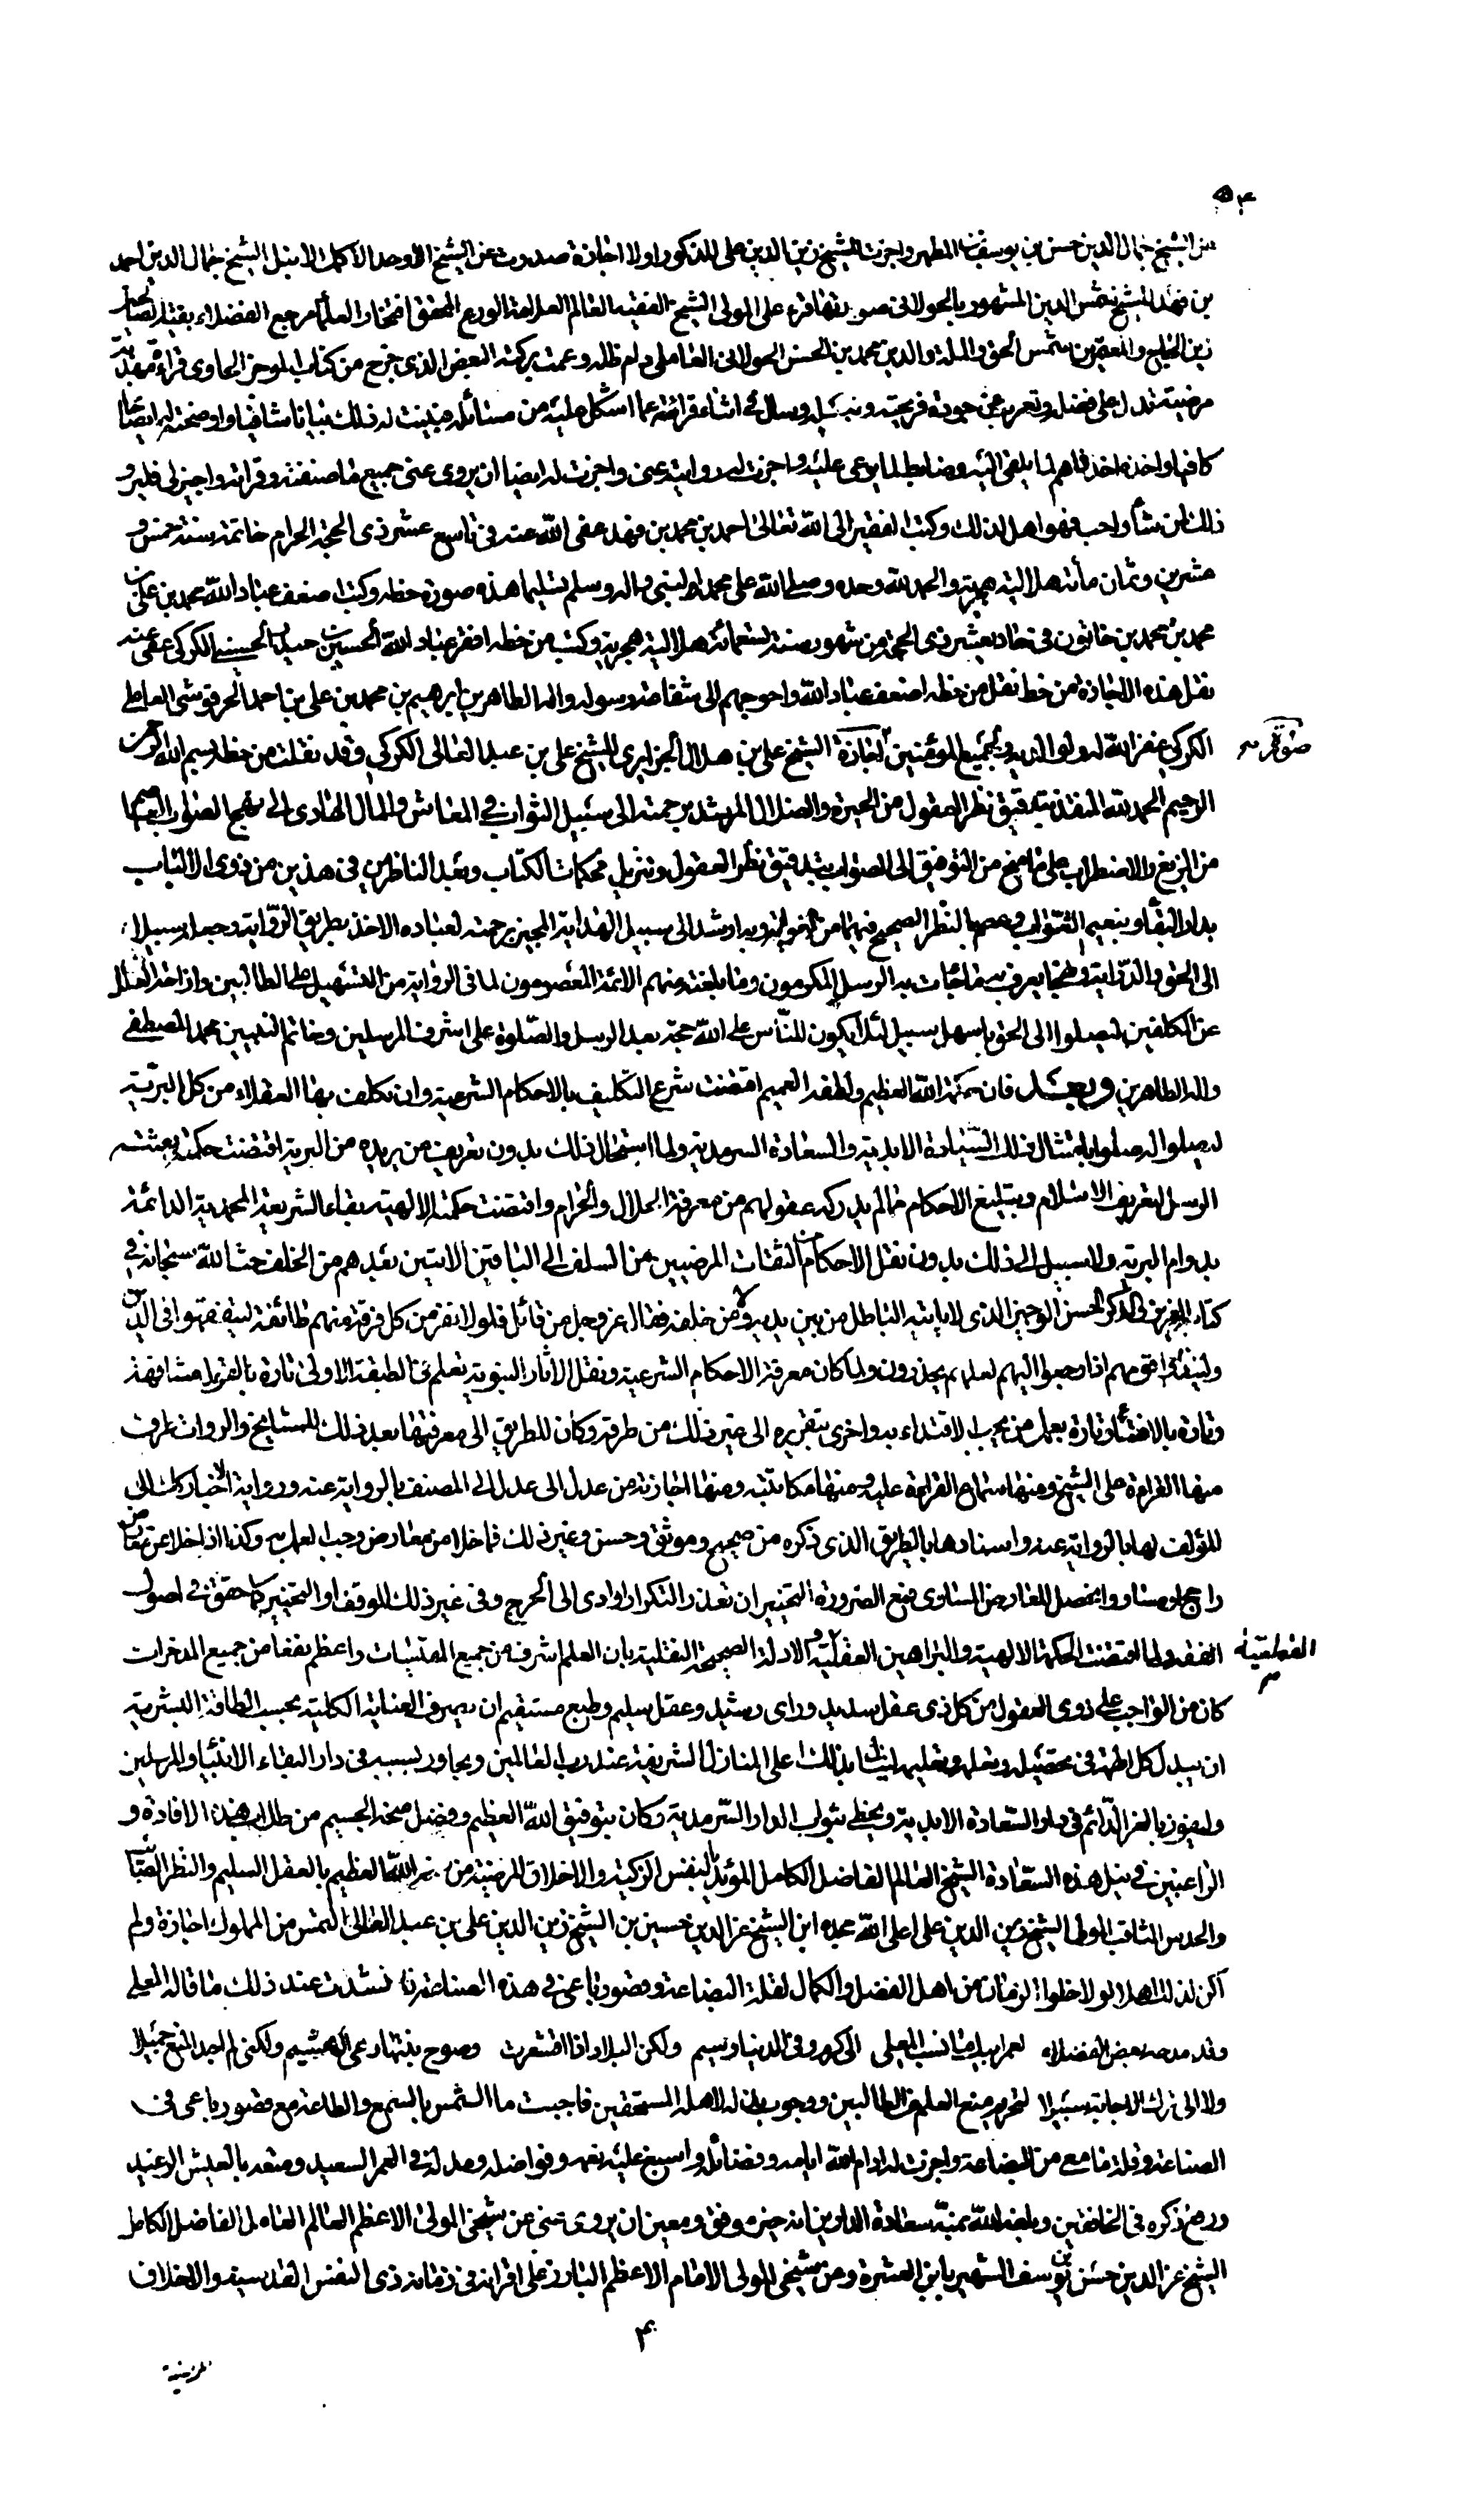 ٥٤
من الشيخ جمال الدين حسن بن يوسف المطهر واجزت للشيخ زين الدين على المذكور اولا اجازة صدرت عن الشيخ الاوحد الاكمل الانبل الشيخ جمال الدين احمد
بن فهد للشيخ شمس الدين المشهور بالحولانى صورتها قرء على المولى الشيخ الفقيه العالم العلامة الورع المحقق افتخار العلماء مرجع الفضلاء بقية الصلحاء
زين الحاج والمعتمرين شمس الحق والملة والدين محمد بن الحسن الحولانى العاملى دام ظله وعمت بركته البعض الذى خرج من كتاب الموجز الحاوى قراءة مهذبة
مرضية تدل على فضله وتعرب عن جودة قريحته ونبله وسال فى اثناء قرائته عما اشكل عليه من مسائله فبينت له ذلك بيانا شافيا واوضحته له ايضاحا
كافيا واخذه اخذ فاهم لما يلقى اليه وضابط لما يوعى عليه واجزت له روايته عنى واجزت له ايضا ان يروى عنى جميع ما صنفته وقراته واجيز لى فليرو
ذلك لمن شاء واحب فهو اهل لذلك وكتب الفقير الى الله تعالى احمد بن محمد بن فهد عفى الله عنه فى تاسع عشر ذى الحجة الحرام خاتمة سنة خمس و
عشرين وثمان مأئة هلالية هجرية والحمد لله وحده وصلى الله على محمد النبى واله وسلم تسليما هذه صورة خطه وكتب اضعف عباد الله محمد بن على بن
محمد بن محمد بن خاتون فى حادى عشر ذى الحجة من شهور سنة تسعمائة هلالية هجرية وكتب من خطه افقر عباد الله الحسين بن حيدر الحسينى الكركى عفى عنه
نقل هذه الاجازة من خط نقل من خطه اضعف عباد الله واحوجهم الى شفاعة رسوله واله الطاهرين ابرهيم بن محمد بن على بن احمد الحرفوشى العاملى
الكركى غفر الله له ولوالديه ولجميع المؤمنين اجازة الشيخ على بن هلال الجزايرى للشيخ على بن عبد العالى الكركى وقد نقلت من خطه بسم الله الرحمن
الرحيم الحمد لله المنقذ بتدقيق نظر العقول من الحيرة والضلال المرشد برحمته الى سبيل الثواب فى المعاش والمال الهادى الى نهج الصواب العاصم لها
من الزيغ والاضطراب على ما منح من التوفيق الى الصواب بتدقيق نظر العقول وتنزيل محكمات الكتاب ويعد الناظرين فى هذين من ذوى الالباب
بدار البقاء ونعيم الثواب وعصم بالنظر الصحيح فيهما من الغواية وارشد الى سبيل الهداية المجيز برحمته لعباده الاخذ بطريق الرواية وجعله سبيلا
الى الحق والدراية وطريقا يعرف به ما جاءت به الرسل المكرمون وما بلغته منهم الائمة المعصومون لما فى الرواية من التسهيل على الطالبين وازاحة العلل
عن المكلفين ليصلوا الى الحق باسهل سبيل لئلا يكون للناس على الله حجة بعد الرسل والصلوة على اشرف المرسلين وخاتم النبيين محمد المصطفى
واله الطاهرين وبعد فان حكمة الله العظيم ولطفه العميم اقتضت شرع التكليف بالاحكام الشرعية وان تكلف بها العقلاء من كل البرية
ليصلوا بامتثال ذلك السيادة الابدية والسعادة السرمدية ولما استحال ذلك بدون تعريف من يريده من البرية اقتضت حكمته بعثة
الرسل لتعريف الاسلام وتبليغ الاحكام مالم يدركه عقولهم من معرفة الحلال والحرام واقتضت حكمته الالهية بقاء الشريعة المحمدية الدائمة
بدوام البرية ولا سبيل الى ذلك بدون نقل الاحكام من الثقات المرضيين من السلف الى الباقين الاتين بعدهم من الخلف حث الله سبحانه فى
كتابه العزيز والذكر الحسن الوجيز الذى لا ياتيه الباطل من بين يديه ولا من خلفه فقال عز وجل من قائل فلولا نفر من كل فرقة منهم طائفة ليتفقهوا فى الدين
ولينذروا قومهم اذا رجعوا اليهم لعلهم يحذرون ولما كان معرفة الاحكام الشرعية ونقل الاثار النبوية تعلم فى الطبقة الاولى تارة بالقراءة مشافهة
وتارة بالافتاء وتارة بعمل من يجب الاقتداء به واخرى بتقريره الى غير ذلك من طرقه وكان للطريق الى معرفتها بعد ذلك للمشايخ والروات طرق
منها القراءة على الشيخ ومنها سماع القراءة عليه ومنها مكاتبته ومنها اجازته من عدل الى عدل الى المصنف بالرواية عنه ورواية الاخبار كذلك الى
المؤلف لها بالرواية عنه واسنادها بالطريق الذى ذكره من صحيح وموثق وحسن وغير ذلك فما خلا من معارض وجب العمل به وكذا اذا خلا عن معارض
راجح او مساو وان حصل المعارض المساوى فمع الضرورة التخيير ان تعذر التكرار او ادى الى الحرج وفى غير ذلك الوقف او التخيير كما حقق فى اصول
الفقه ولما اقتضت الحكمة الالهية والبراهين العقلية والادلة الصحيحة النقلية بان العلم اشرف من جميع المقتنيات واعظم نفعا من جميع المدخرات
القطعية
كان من الواجب على ذوى العقول من كل ذى عقل سديد وراى رشيد وعقل سليم وطبع مستقيم ان يصرف العناية الكلية بحسب الطاقة البشرية
ان يبذل كل الجهد فى تحصيله وتعلمه وتعليمه لينال بذلك اعلى المنازل الشريفة عند رب العالمين ويجاور بسببه فى دار البقاء الانبياء والمرسلين
وليفوز بالعز الدائم فى دار السعادة الابدية ويحظى بثواب الدار السرمدية وكان بتوفيق الله العظيم وفضل منحه الجسيم من طلاب هذه الافادة و
الراغبين فى نيل هذه السعادة الشيخ العالم الفاضل الكامل المؤيد بالنفس الزكية والاخلاق المرضية من الله العظيم بالعقل السليم والنظر الصائب
والحدس الثاقب المولى الشيخ زين الدين على اعلى الله مجده ابن الشيخ عز الدين حسين بن الشيخ زين الدين على بن عبد العالى التمس من المملوك اجازة ولم
اكن لذلك اهلا لولا خلو الزمان من اهل الفضل والكمال لقلة البضاعة وقصور باعى فى هذه الصناعة نشدت عند ذلك ما قاله المعلى
وقد مدحه بعض الفضلاء لعمر ابيك ما نسب المعلى الى كرم وفى الدنيا وسيم ولكن البلاد اذا اقشعرت وصوح نبتها رعى الهشيم ولكنى لم اجد المنع جميلا
ولا الى ترك الاجابة سبيلا لتحريم منع العلم من الطالبين ووجوب بذله لاهله المستحقين فاجبت ما التمس بالسمع والطاعة مع قصور باعى فى
الصناعة وقلة ما معى من البضاعة واجزت له ادام الله ايامه وفضائله واسبغ عليه نعمه وفواضله ومد له فى العمر السعيد ومتعه بالعيش الارغيد
ورفع ذكره فى الخافقين وبلغه الله بمنه سعادة الدارين انه خير موفق ومعين ان يروى عنى عن شيخى المولى الاعظم العالم العامل الفاضل الكامل
الشيخ عز الدين حسن بن يوسف الشهير بابن العشرة ومن شيخى المولى الامام الاعظم البارز على اقرانه فى زمانه ذى النفس القدسية والاخلاق
٣
المرضية